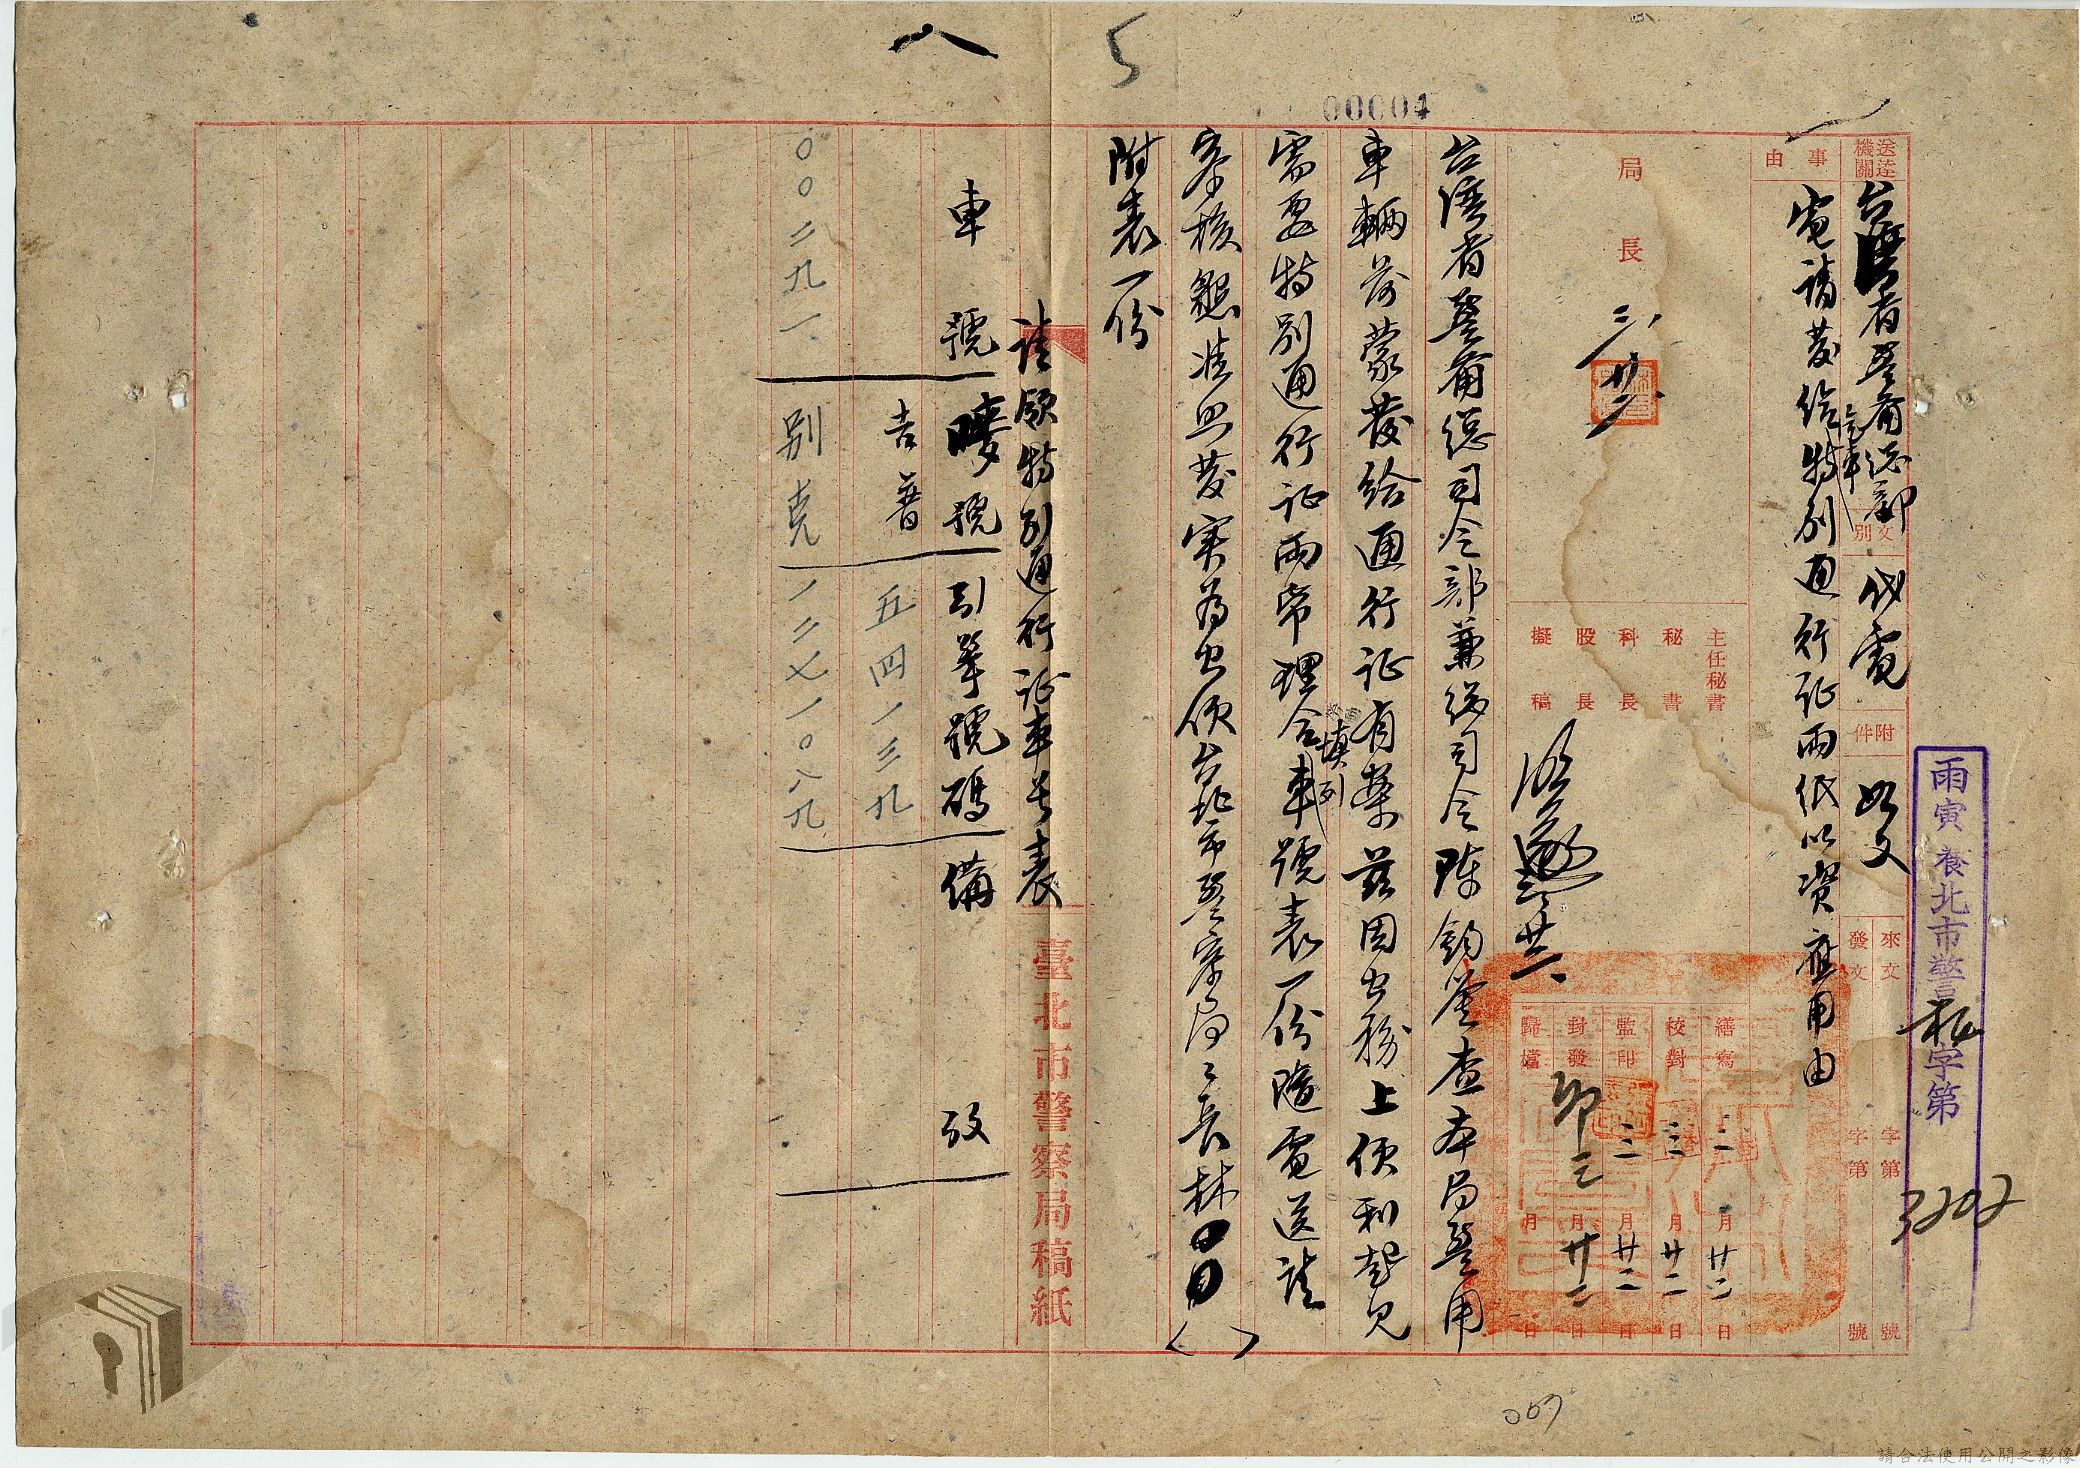 八
5
00004
送達機關
台灣省警備總部
文別
代電
附件
如文
來文 字第 號
發文 字第 號
雨寅養北市警秘字第
3202
事由
電請發給汽車特別通行証兩紙以資應用由
局長
三、廿二
主任秘書
秘書
科長
股長
擬稿
繕寫 三月廿二日
校對 三月廿二日
監印 三月廿二日
封發 三月廿二日
歸檔 月 日
台灣省警備總司令部兼總司令陳鈞鑒查本局警用
車輛前蒙發給通行证有案茲因公務上便利起見
需要特別通行证兩帋理合填列車號表一份隨電送請
察核懇准照發實為公便台北市警察局局長林
附表一份
請領特别通行证車号表
臺北市警察局稿紙
車號 嘜號 引擎號碼 備攷
吉普 五四一三九
〇〇二九一 别克 一二七一〇八九
007
請合法使用公開之影像